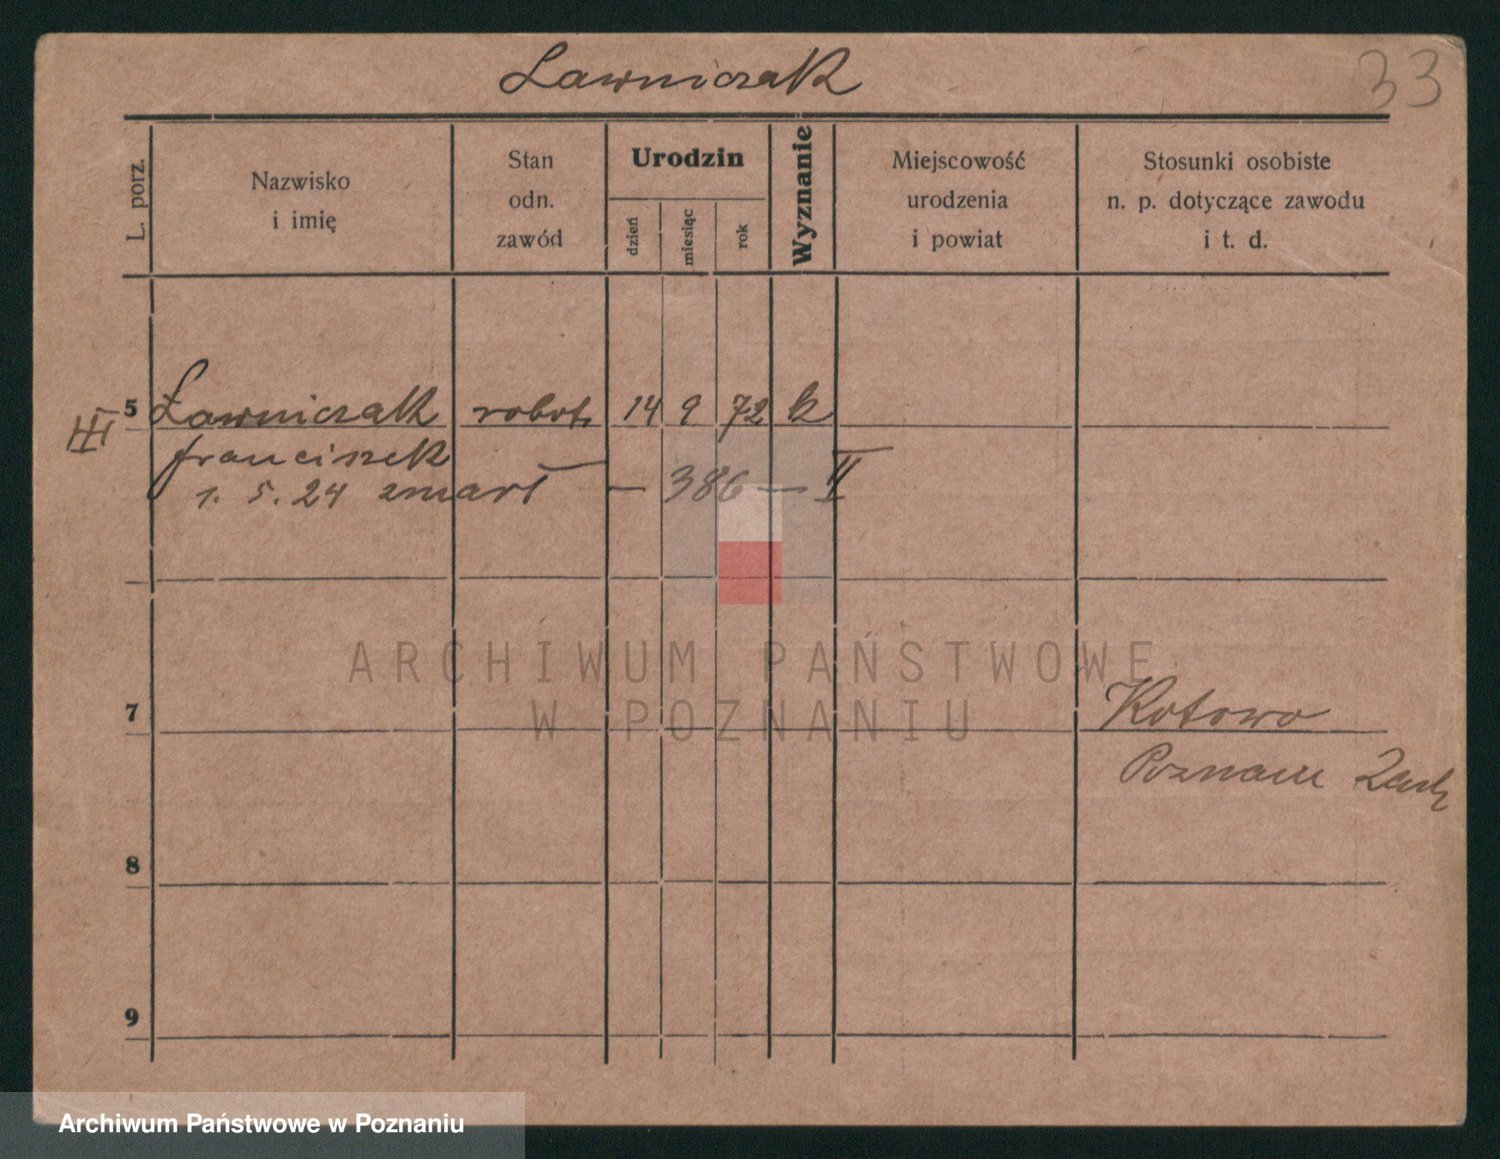 Ławniczak
33
L. porz.
Nazwisko
i imię
Stan
odn.
zawód
Urodzin
dzień
miesiąc
rok
Wyznanie
Miejscowość
urodzenia
i powiat
Stosunki osobiste
n. p. dotyczące zawodu
i t. d.
III
5 Ławniczak robot. 14 9 72 k
franciszek
1. 5. 24 zmarł — 386 — II
ARCHIWUM PAŃSTWOWE
W POZNANIU
7 Kotowo
Poznań Zach
8
9
Archiwum Państwowe w Poznaniu